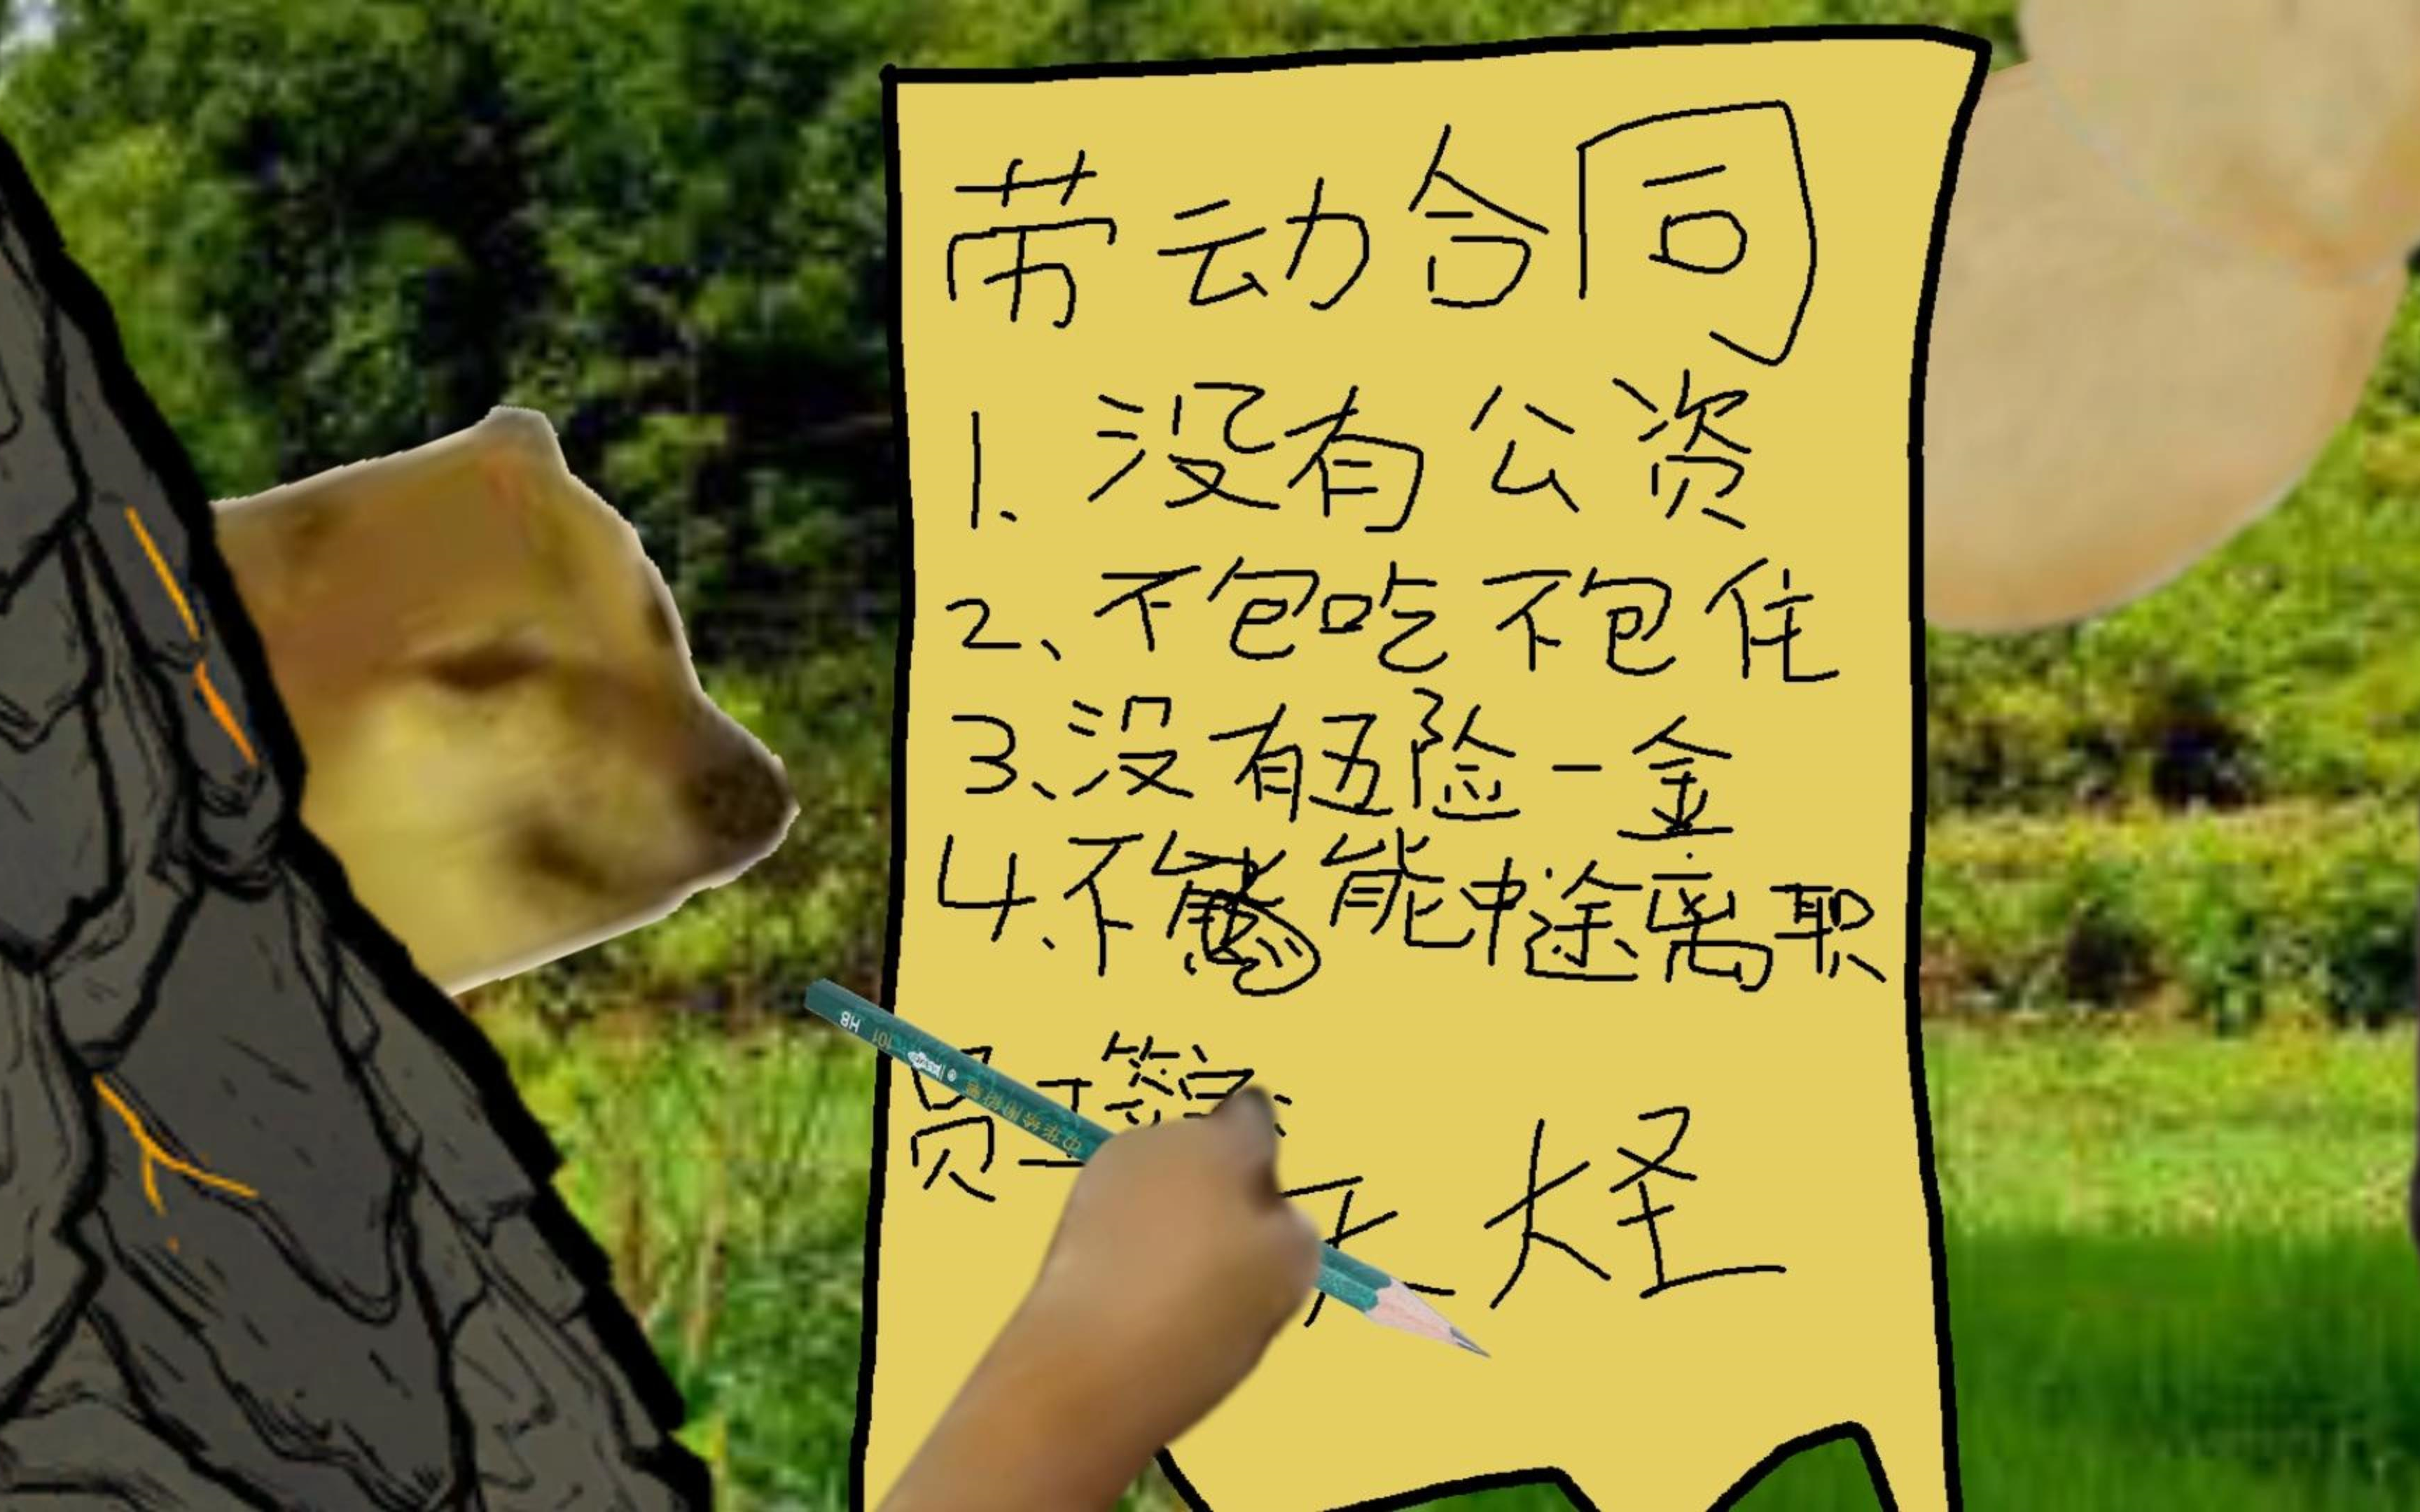 劳动合同
1、没有公资
2、不包吃不包住
3、没有五险一金
4、不能中途离职
员工签字:
大怪
HB 101
中华绘图铅笔